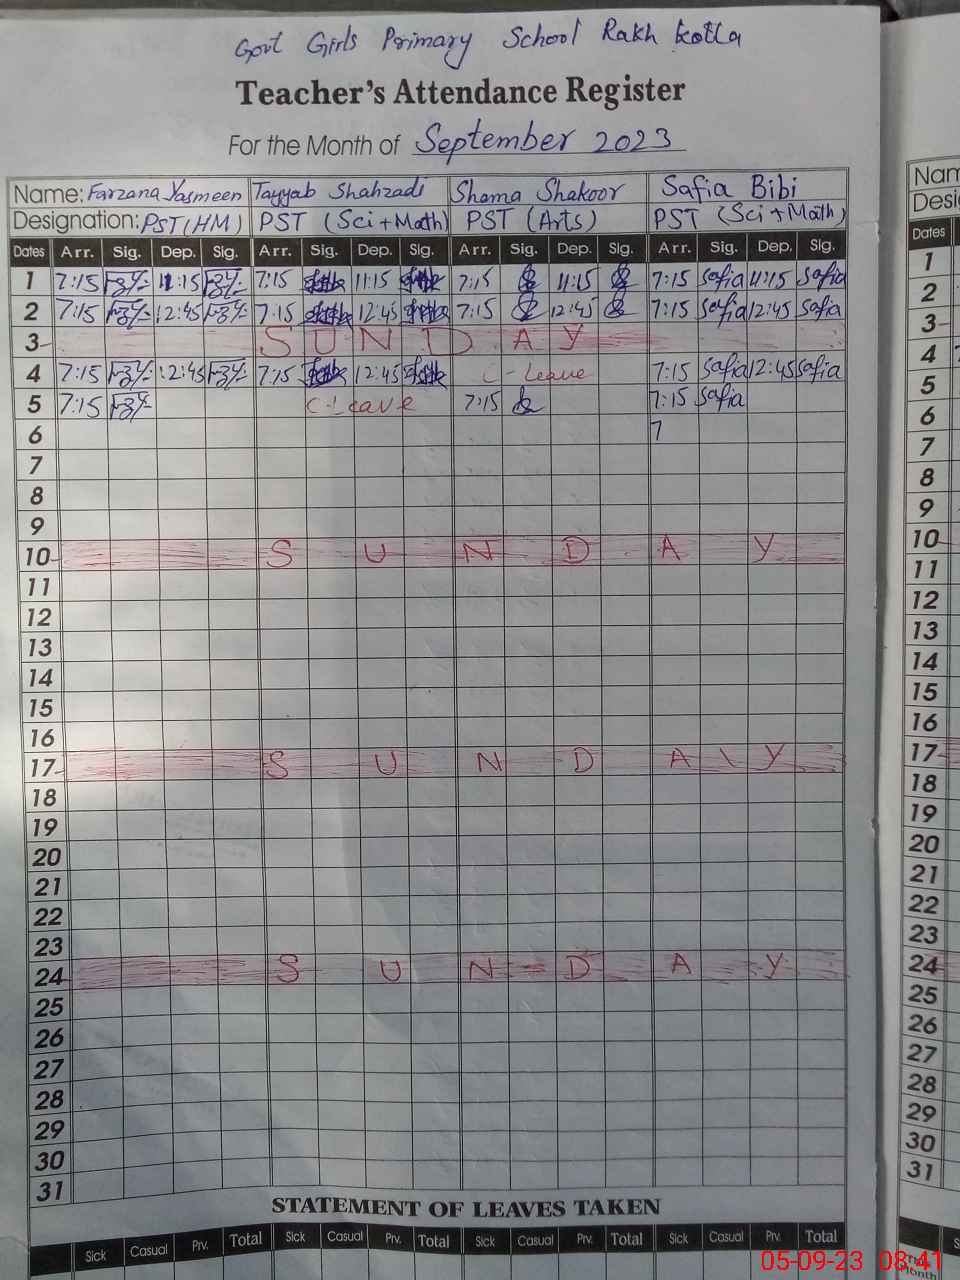 Govt Girls Primary School Rakh Kotla
Teacher's Attendance Register
For the Month of September 2023
Name: Farzana Yasmeen Tayyab Shahzadi Shama Shakoor Safia Bibi
Designation: PST (HM) PST (Sci + Math) PST (Arts) PST (Sci + Math)
Dates Arr. Sig. Dep. Sig. Arr. Sig. Dep. Sig. Arr. Sig. Dep. Sig. Arr. Sig. Dep. Sig.
1 7:15 11:15 7:15 11:15 7:15 11:15 7:15 Safia 11:15 Safia
2 7:15 12:45 7:15 12:45 7:15 12:45 7:15 Safia 12:45 Safia
3 SUNDAY
4 7:15 12:45 7:15 12:45 C-Leave 7:15 Safia 12:45 Safia
5 7:15 C-Leave 7:15 7:15 Safia
6 7
7
8
9
10 SUNDAY
11
12
13
14
15
16
17 SUNDAY
18
19
20
21
22
23
24 SUNDAY
25
26
27
28
29
30
31
STATEMENT OF LEAVES TAKEN
Sick Casual Prv. Total Sick Casual Prv. Total Sick Casual Prv. Total Sick Casual Prv. Total
Nam
Desig
Dates
1
2
3
4
5
6
7
8
9
10
11
12
13
14
15
16
17
18
19
20
21
22
23
24
25
26
27
28
29
30
31
This Month
05-09-23 08:41